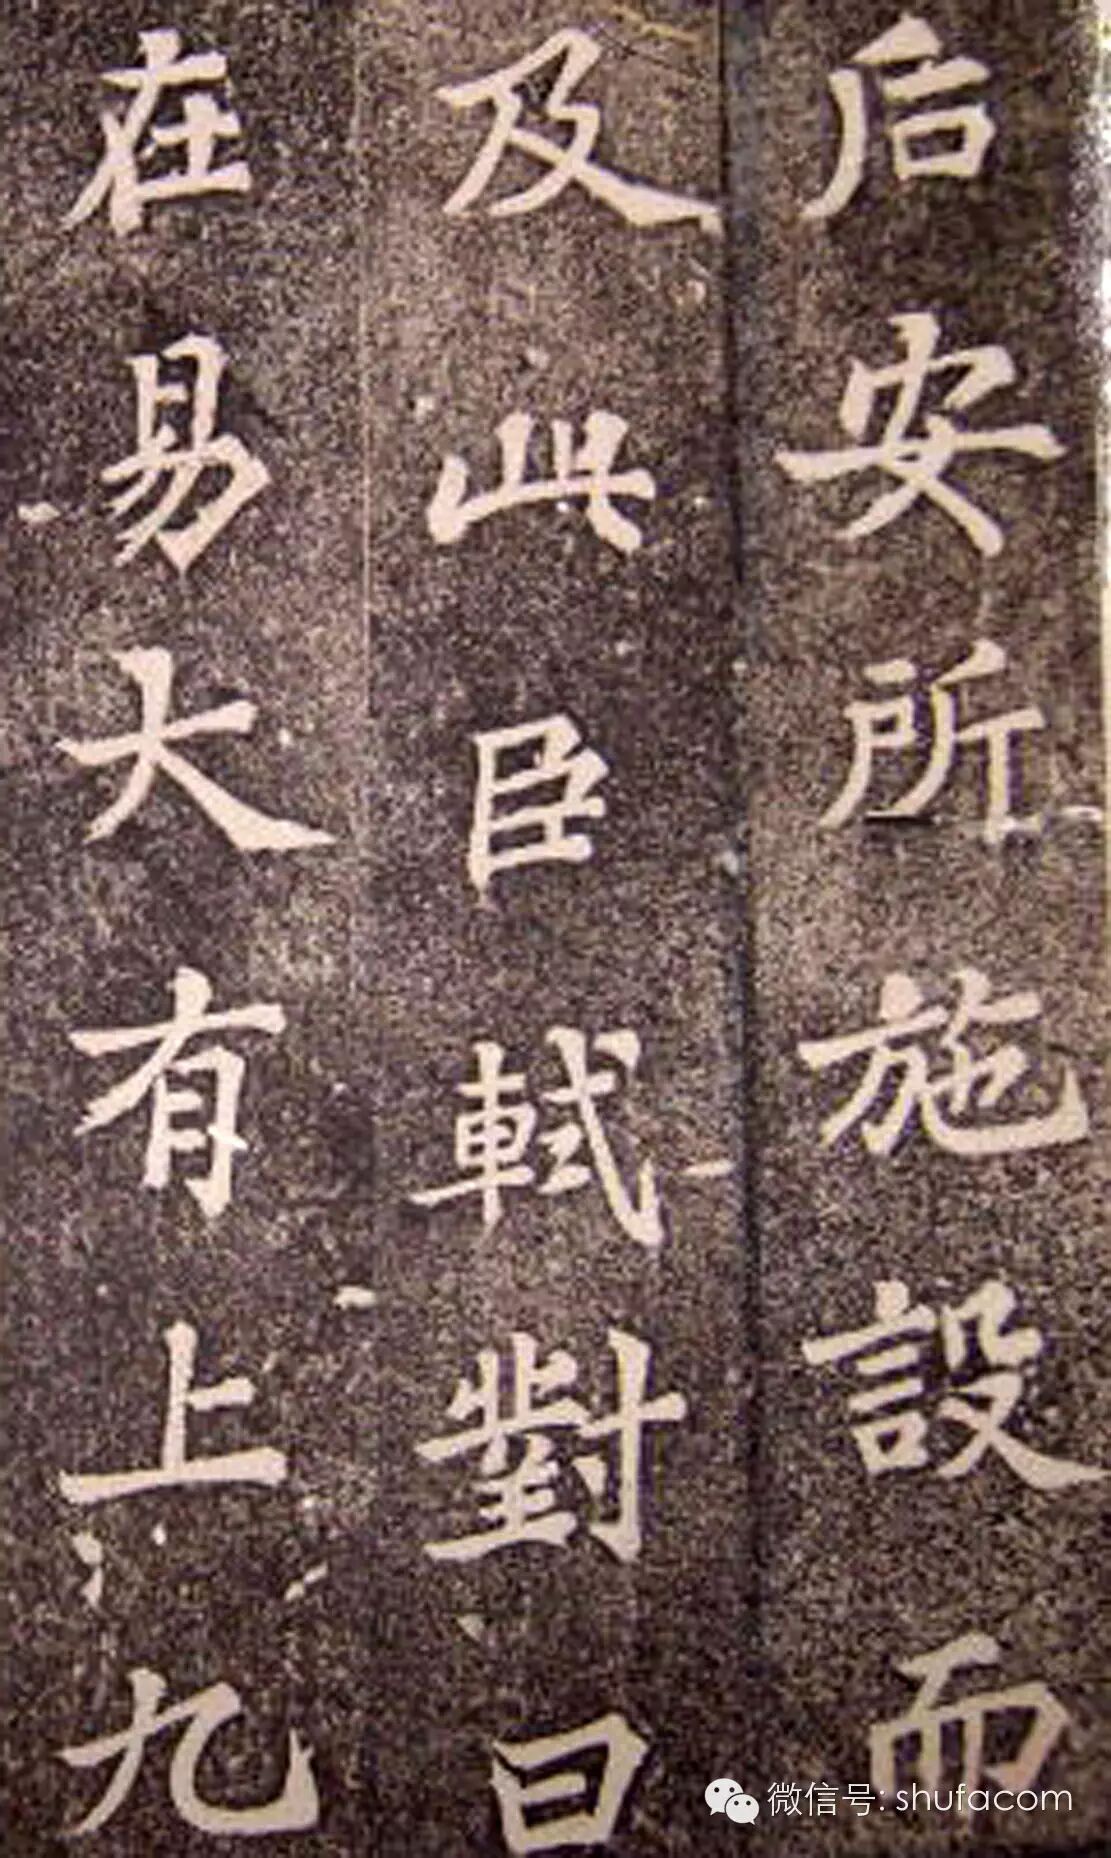 后安所施設而
及此臣軾對曰
在易大有上九
微信号: shufacom